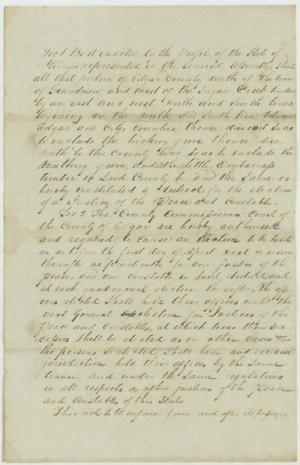 Sec 1 Be it enacted by the People of the State of
Illinois represented in the General Assembly, That
all that portion of Edgar County north of the town
of Grandview and West of the Sugar Creek timber
by an east and west north and south lines
beginning on the north and south line between
Edgar and Coles Counties, thence due east so as
to include the Hickory grove thence due
north to the County line so as to include the
grove and the little Embarrass
timber in Said County be and the Same is
hereby constituted a district for the election
of a Justice of the Peace and Constable.
Sec 2 The County Commissioners Court of
the County of Edgar are hereby authorised
and required to cause an election to be held
on the first day of April next or soon
thereafter as practicable for one Justice of the
peace, and one Constable in Said district and
at each quadrennial election thereafter. The offi
cers elected Shall hold their offices until the
next General election for Justices of the
Peace and Constables, at which time their suc
cessors Shall be elected as in other cases
the persons So elected Shall have and exercise
jurisdiction hold their offices by the Same
tenure, and under the Same regulations
in all respects as other justices of the Peace
and Constables of this State
This act to be in force from and after its passage